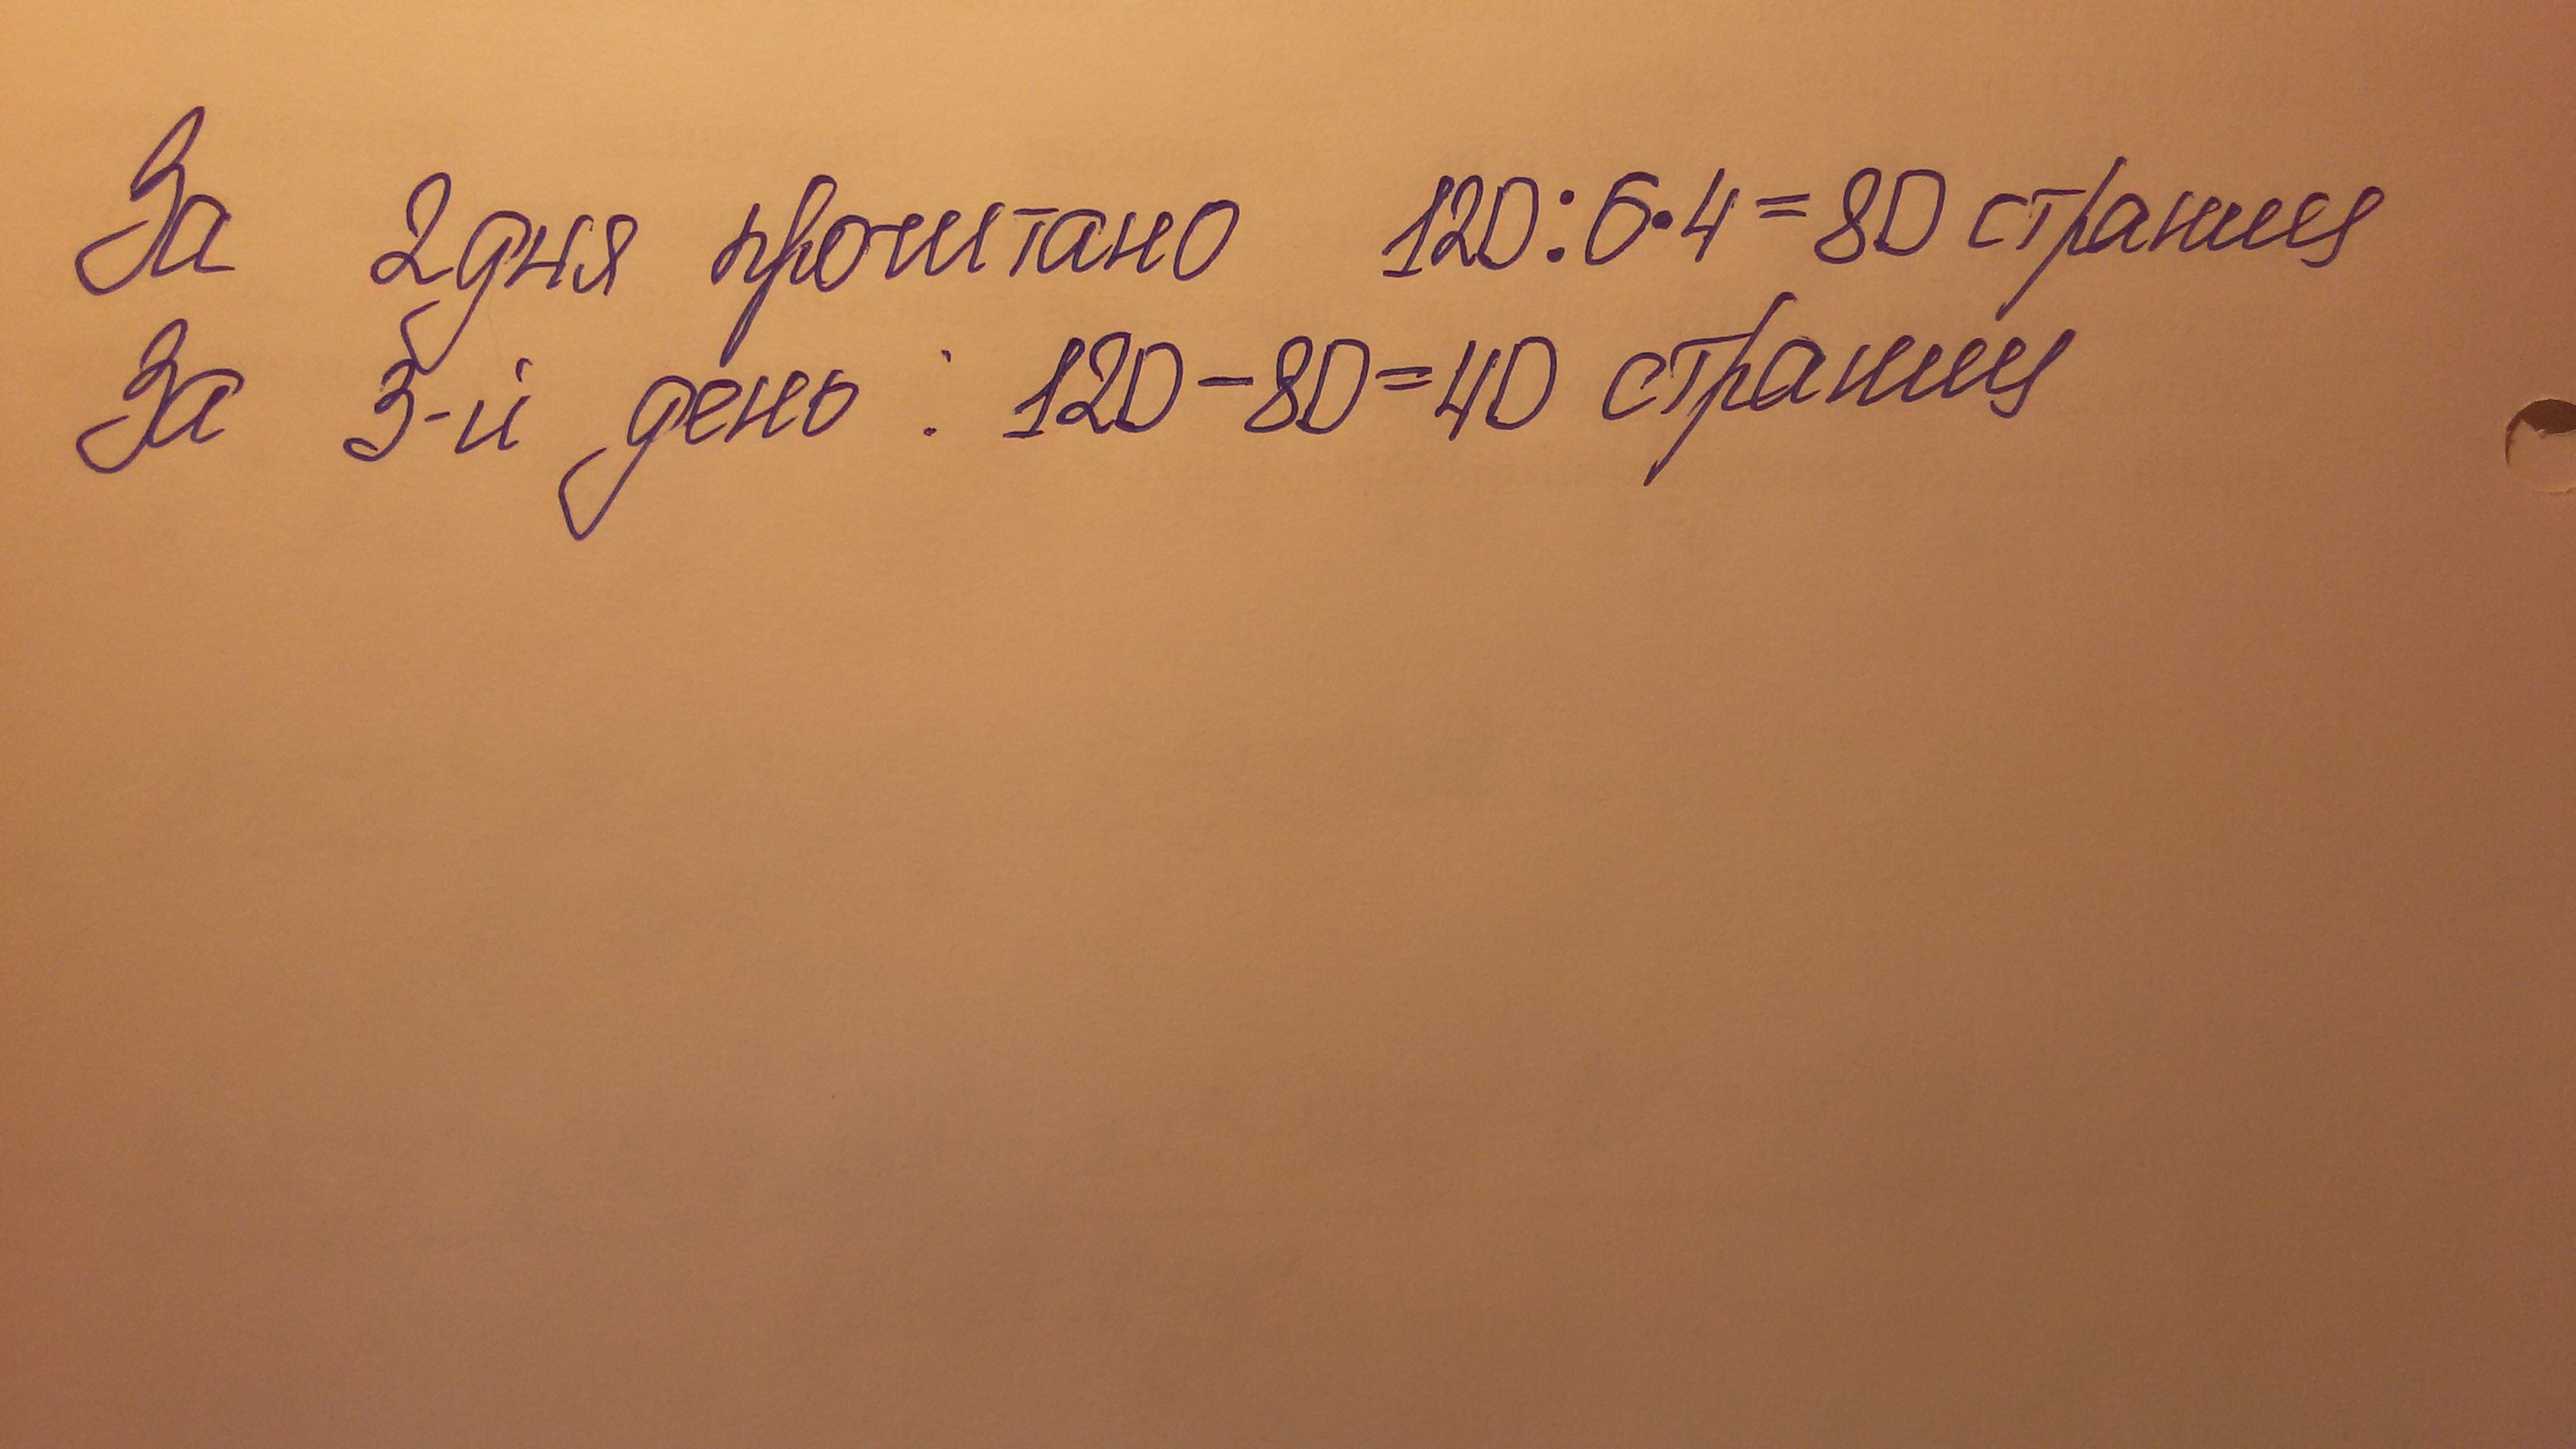 За 2 дня прочитано 120:6·4=80 страниц
За 3-й день : 120-80=40 страниц